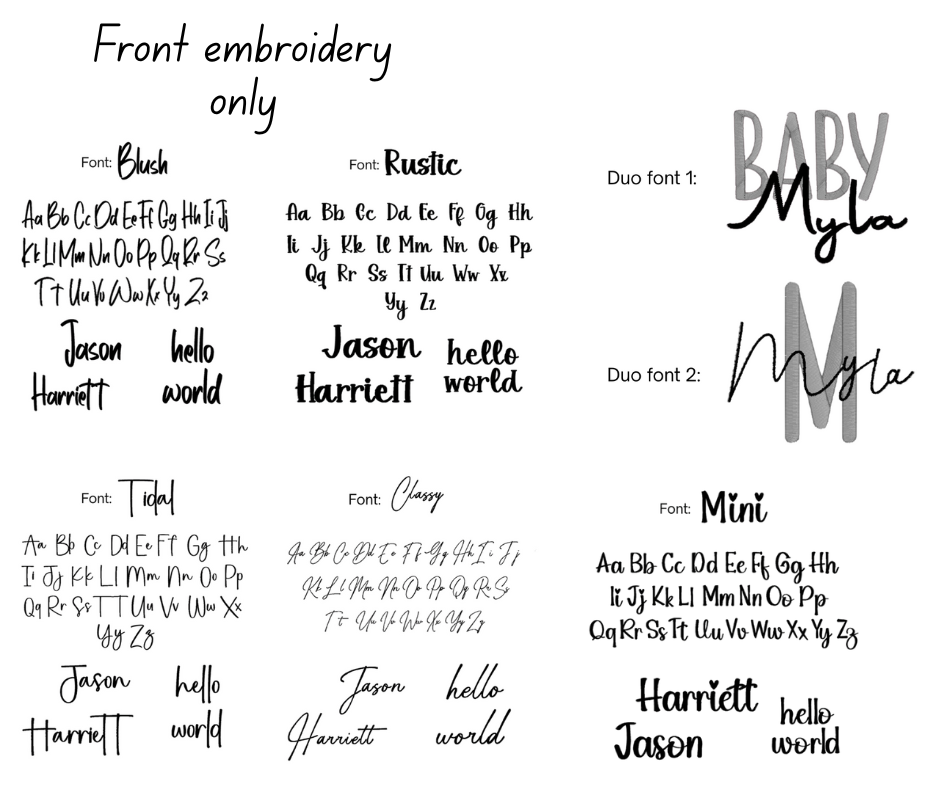 Front embroidery
only
Font: Blush
Aa Bb Cc Dd Ee Ff Gg Hh Ii Jj
Kk Ll Mm Nn Oo Pp Qq Rr Ss
Tt Uu Vv Ww Xx Yy Zz
Jason hello
Harriett world
Font: Rustic
Aa Bb Cc Dd Ee Ff Gg Hh
Ii Jj Kk Ll Mm Nn Oo Pp
Qq Rr Ss Tt Uu Ww Xx
Yy Zz
Jason hello
Harriett world
Duo font 1:
BABY
Myla
Duo font 2:
M
Myla
Font: Tidal
Aa Bb Cc Dd Ee Ff Gg Hh
Ii Jj Kk Ll Mm Nn Oo Pp
Qq Rr Ss Tt Uu Vv Ww Xx
Yy Zz
Jason hello
Harriett world
Font: Classy
Aa Bb Cc Dd Ee Ff Gg Hh Ii Jj
Kk Ll Mm Nn Oo Pp Qq Rr Ss
Tt Uu Vv Ww Xx Yy Zz
Jason hello
Harriett world
Font: Mini
Aa Bb Cc Dd Ee Ff Gg Hh
Ii Jj Kk Ll Mm Nn Oo Pp
Qq Rr Ss Tt Uu Vv Ww Xx Yy Zz
Harriett hello
Jason world